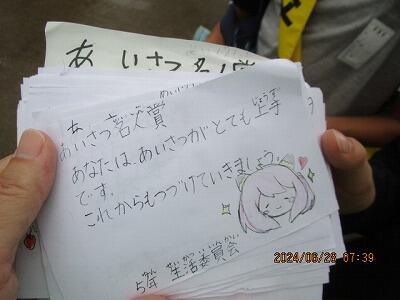 あいさつ名人賞
あなたは、あいさつがとても上手
じょうず
です。
これからもつづけていきましょう。
5年 生活委員会
ねん せいかついいんかい
2024/06/28 07:39